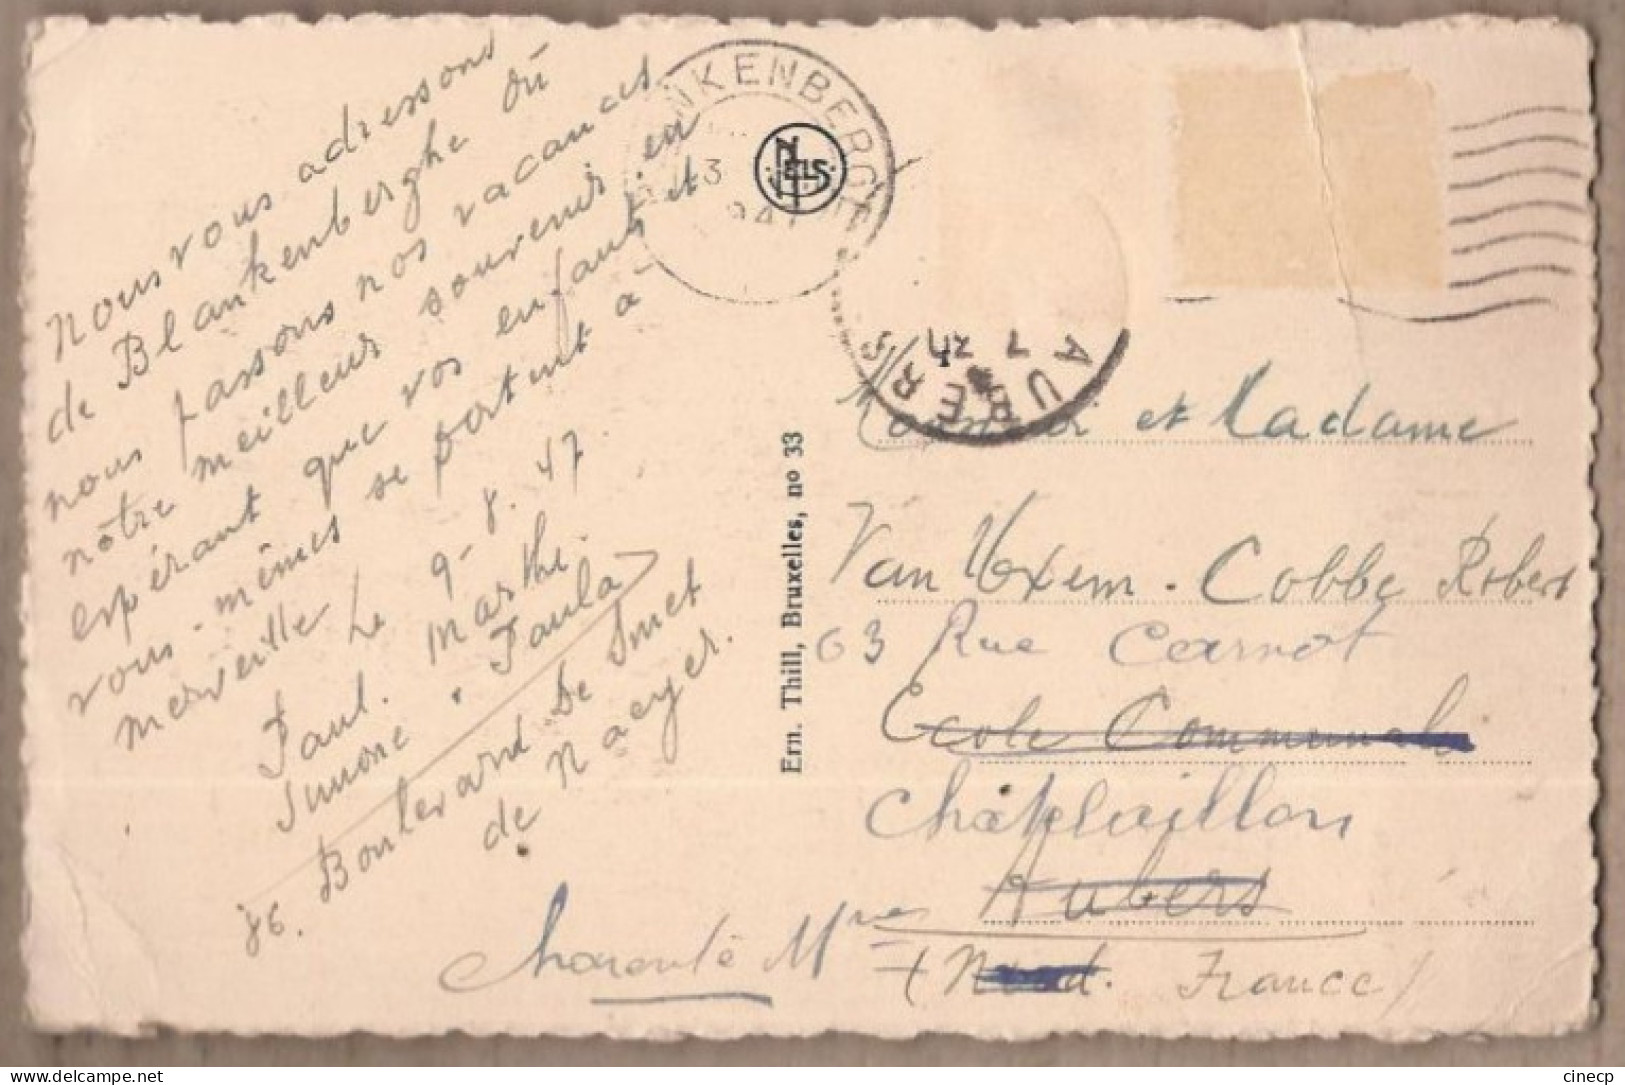 Nous vous adressons
de Blankenberghe où
nous passons nos vacances
nôtre meilleur souvenir en
espérant que vos enfants et
vous-mêmes se portent à
merveille Le 9-8.47
Paul. Marthe.
Simone. Paula
86. Boulevard De Smet
de Naeyer.
NKENBERGE
3
NELS
AUBERS
Ern. Thill, Bruxelles, no 33
et Madame
Van - Cobbe Robert
63 Rue Carnot
Ecole Communale
Châtelaillon
Aubers
Charente Mme
(Nord. France)
cinecp